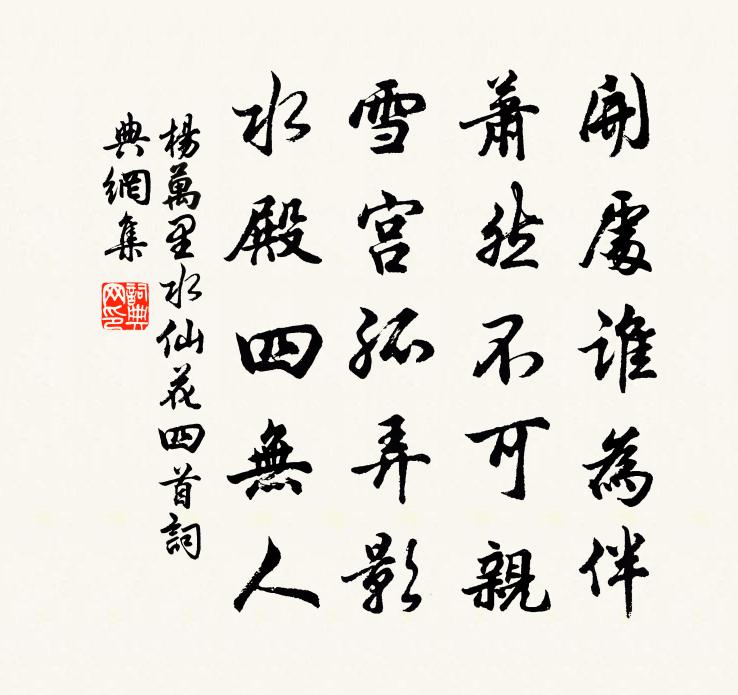 開處誰為伴
蕭然不可親
雪宮孤弄影
水殿四無人
楊萬里水仙花四首詞
典網集
詞典網印